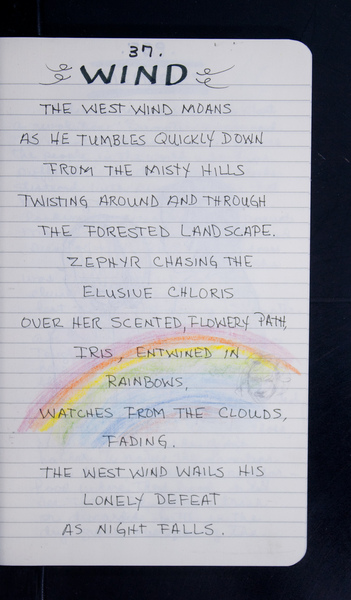 37.
WIND
THE WEST WIND MOANS
AS HE TUMBLES QUICKLY DOWN
FROM THE MISTY HILLS
TWISTING AROUND AND THROUGH
THE FORESTED LANDSCAPE.
ZEPHYR CHASING THE
ELUSIVE CHLORIS
OVER HER SCENTED, FLOWERY PATH,
IRIS, ENTWINED IN
RAINBOWS,
WATCHES FROM THE CLOUDS,
FADING.
THE WEST WIND WAILS HIS
LONELY DEFEAT
AS NIGHT FALLS.